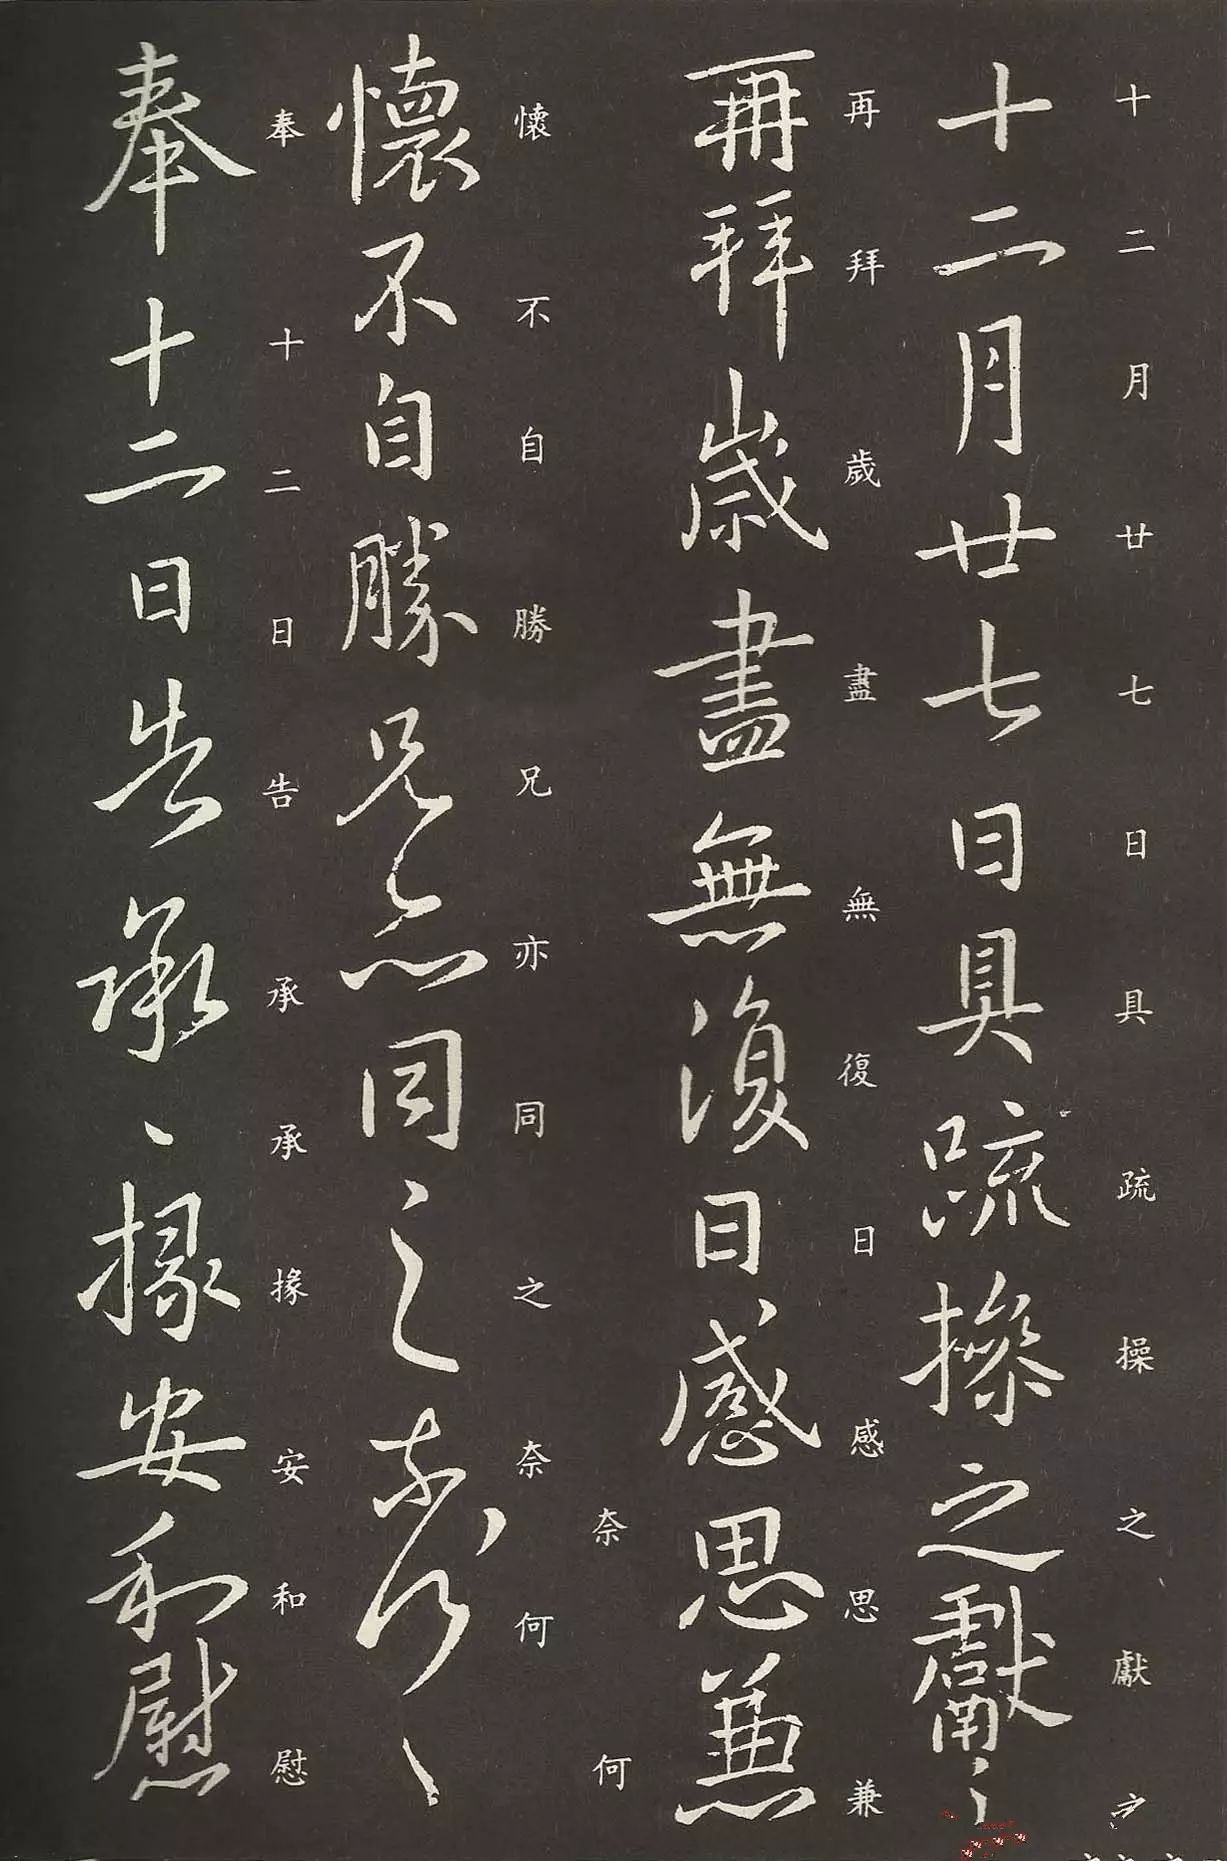 十二月廿七日具疏操之獻之
十二月廿七日具疏操之獻之
再拜歲盡無復日感思兼
再拜歲盡無復日感思兼
奈何
懷不自勝兄亦同之奈何
懷不自勝兄亦同之奈何〻
奉十二日告承承掾安和慰
奉十二日告承〻掾安和慰